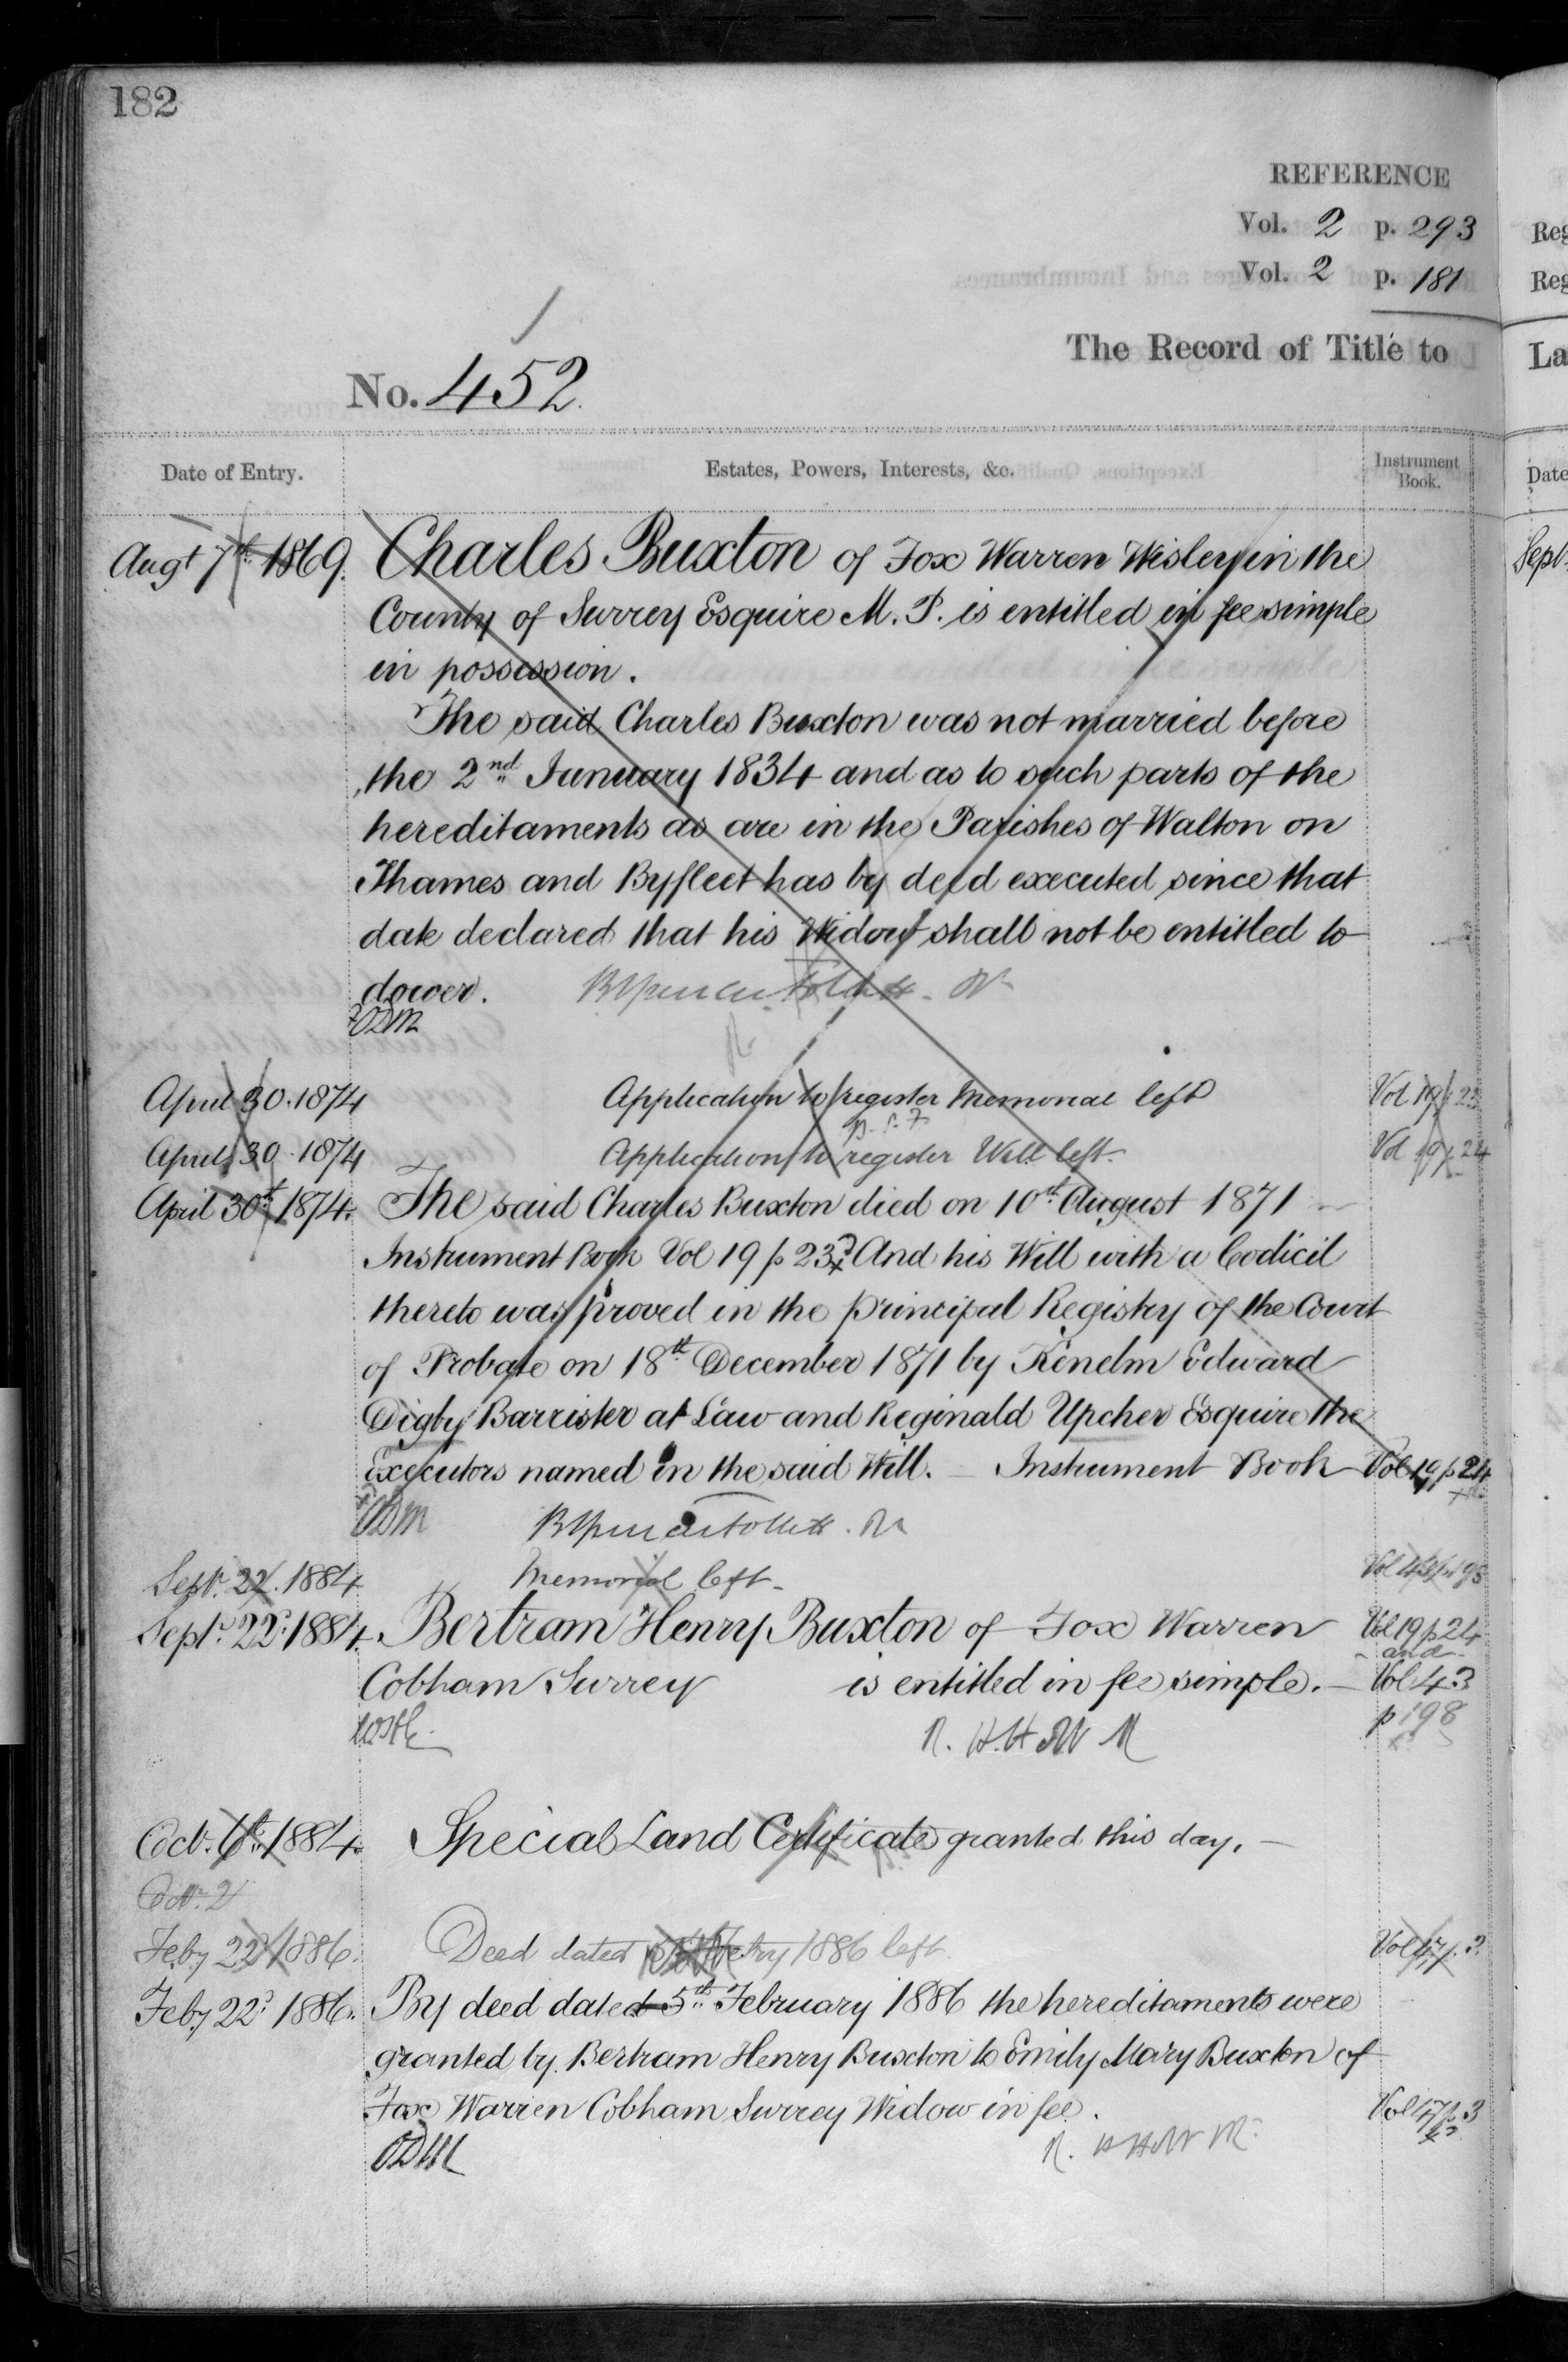 182
REFERENCE
Vol. 2 p. 293
Vol. 2 p. 181
The Record of Title to
No. 452.
Date of Entry.
Estates, Powers, Interests, &c.
Instrument
Book.
Augt 7th 1869. Charles Buxton of Fox Warren Wisley in the
County of Surrey Esquire M. P. is entitled in fee simple
in possession.
The said Charles Buxton was not married before
the 2nd January 1834 and as to such parts of the
hereditaments as are in the Parishes of Walton on
Thames and Byfleet has by deed executed since that
date declared that his Widow shall not be entitled to
dower.
April 30. 1874 Application to register Memorial left Vol 19 p 23
April 30. 1874 Application to register Will left. Vol 19 p 24
April 30th 1874. The said Charles Buxton died on 10th August 1871
Instrument Book Vol 19 p 23 And his Will with a Codicil
thereto was proved in the principal Registry of the Court
of Probate on 18th December 1871 by Kenelm Edward
Digby Barrister at Law and Reginald Upcher Esquire the
Executors named in the said Will. – Instrument Book – Vol 19 p 24
ODM
Sept. 22. 1884 Memorial left – Vol 43 p 198
Septr. 22d. 1884. Bertram Henry Buxton of Fox Warren Vol 19 p 24
and
Cobham Surrey is entitled in fee simple. – Vol 43
p 198
Oct. 6th. 1884. Special Land Certificate granted this day. –
Feby 22d 1886. Deed dated 5th Feby 1886 left Vol 47 p. 3
Feby 22d 1886. By deed dated 5th February 1886 the hereditaments were
granted by Bertram Henry Buxton to Emily Mary Buxton of
Fox Warren Cobham Surrey Widow in fee. Vol 47 p 3
ODM
Reg
Reg
La
Date
Sept.